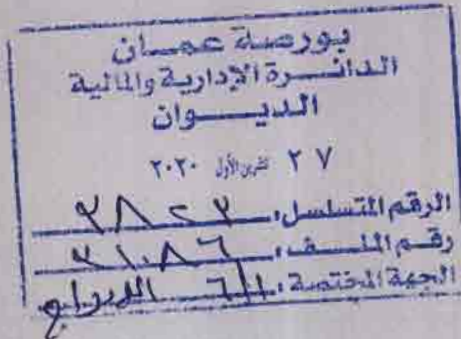 بورصة عمان
الدائرة الإدارية والمالية
الديوان
٢٧ تشرين الأول ٢٠٢٠
الرقم المتسلسل:
رقم الملف:
الجهة المختصة: